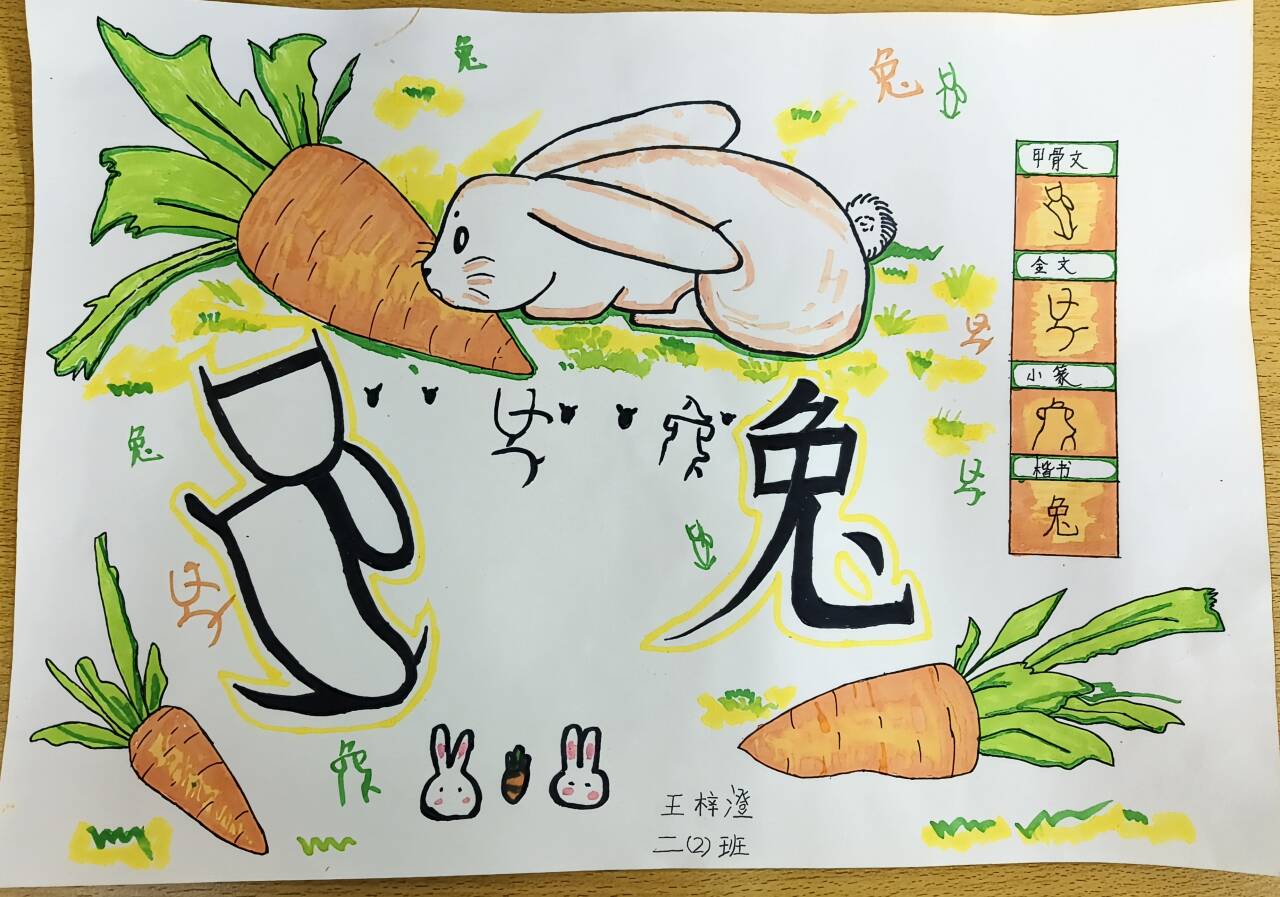 兔
兔
甲骨文
金文
小篆
楷书
兔
兔
兔
王梓澄
二(2)班